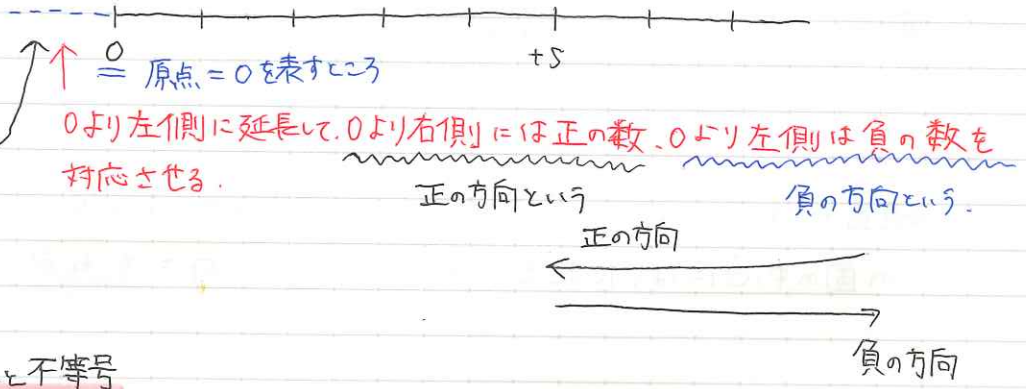 0 +5
原点=0を表すところ
0より左側に延長して、0より右側には正の数、0より左側は負の数を
対応させる.
正の方向という 負の方向という.
正の方向
負の方向
と不等号